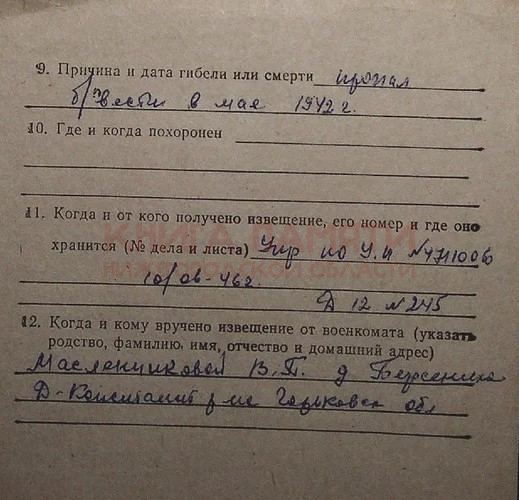 9. Причина и дата гибели или смерти пропал
б/вести в мае 1942 г.
10. Где и когда похоронен
11. Когда и от кого получено извещение, его номер и где оно
хранится (№ дела и листа) Упр по У.п
10/ов-462.
Д 12 № 245
12. Когда и кому вручено извещение от военкомата (указать
родство, фамилию, имя, отчество и домашний адрес)
Масленниковой В.П. д
Д-Констант р-не Горьковск обл
КНИГА ПАМЯТИ
НИЖЕГОРОДСКОЙ ОБЛАСТИ